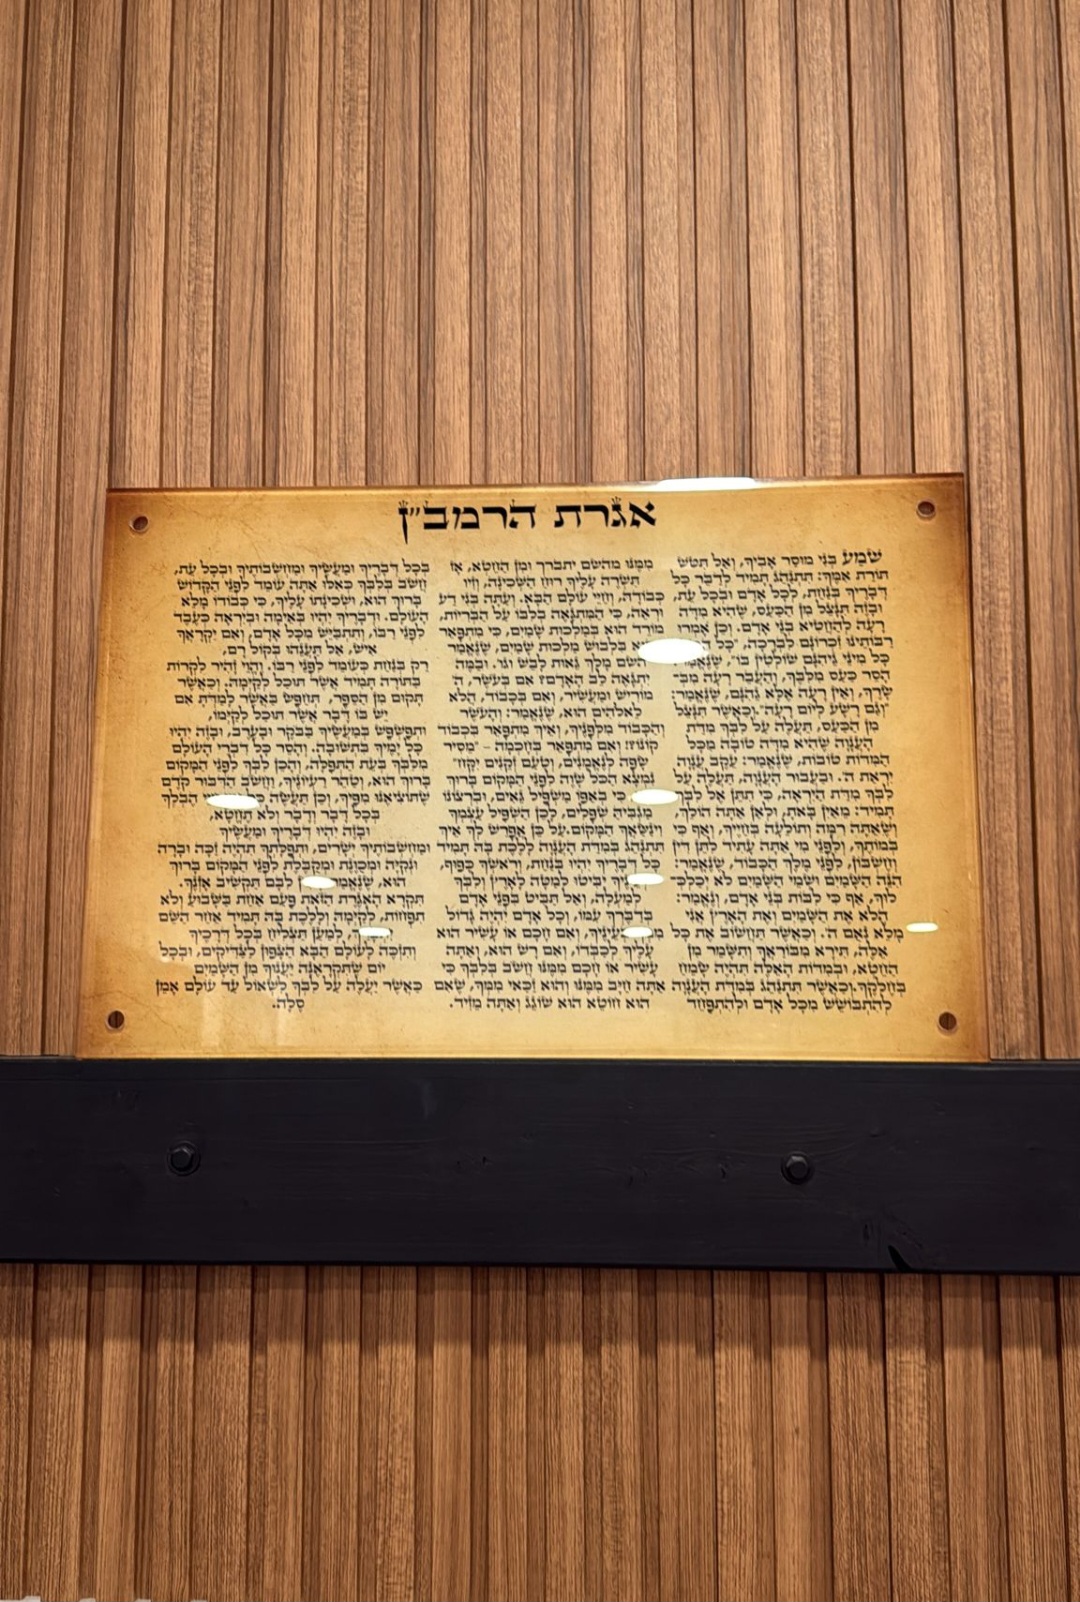 אגרת הרמב״ן
שְׁמַע בְּנִי מוּסַר אָבִיךָ, וְאַל תִּטֹּשׁ
תּוֹרַת אִמֶּךָ: תִּתְנַהֵג תָּמִיד לְדַבֵּר כָּל
דְּבָרֶיךָ בְּנַחַת, לְכָל אָדָם וּבְכָל עֵת,
וּבָזֶה תִּנָּצֵל מִן הַכַּעַס, שֶׁהִיא מִדָּה
רָעָה לְהַחֲטִיא בְּנֵי אָדָם. וְכֵן אָמְרוּ
רַבּוֹתֵינוּ זִכְרוֹנָם לִבְרָכָה, ״כָּל
כָּל מִינֵי גֵיהִנָּם שׁוֹלְטִין בּוֹ״,
הָסֵר כַּעַס מִלִּבֶּךָ, וְהַעֲבֵר רָעָה מִבְּ־
שָׂרֶךָ, וְאֵין רָעָה אֶלָּא גֵיהִנָּם, שֶׁנֶּאֱמַר:
״וְגַם רָשָׁע לְיוֹם רָעָה״.וְכַאֲשֶׁר תִּנָּצֵל
מִן הַכַּעַס, תַּעֲלֶה עַל לִבְּךָ מִדַּת
הָעֲנָוָה שֶׁהִיא מִדָּה טוֹבָה מִכָּל
הַמִּדּוֹת טוֹבוֹת, שֶׁנֶּאֱמַר: עֵקֶב עֲנָוָה
יִרְאַת ה׳. וּבַעֲבוּר הָעֲנָוָה, תַּעֲלֶה עַל
לִבְּךָ מִדַּת הַיִּרְאָה, כִּי תִתֵּן אֶל לִבְּךָ
תָּמִיד: מֵאַיִן בָּאתָ, וּלְאָן אַתָּה הוֹלֵךְ,
וְשֶׁאַתָּה רִמָּה וְתוֹלֵעָה בְּחַיֶּיךָ, וְאַף כִּי
בְּמוֹתָךְ, וְלִפְנֵי מִי אַתָּה עָתִיד לִתֵּן דִּין
וְחֶשְׁבּוֹן, לִפְנֵי מֶלֶךְ הַכָּבוֹד, שֶׁנֶּאֱמַר:
הִנֵּה הַשָּׁמַיִם וּשְׁמֵי הַשָּׁמַיִם לֹא יְכַלְכְּ־
לוּךָ, אַף כִּי לִבּוֹת בְּנֵי אָדָם, וְנֶאֱמַר:
הֲלֹא אֶת הַשָּׁמַיִם וְאֶת הָאָרֶץ אֲנִי
מָלֵא נְאֻם ה׳. וְכַאֲשֶׁר תַּחֲשׁוֹב אֶת כָּל
אֵלֶּה, תִּירָא מִבּוֹרַאֲךָ וְתִשָּׁמֵר מִן
הַחֵטְא, וּבַמִּדּוֹת הָאֵלֶּה תִּהְיֶה שָׂמֵחַ
בְּחֶלְקֶךָ.וְכַאֲשֶׁר תִּתְנַהֵג בְּמִדַּת הָעֲנָוָה
לְהִתְבּוֹשֵׁשׁ מִכָּל אָדָם וּלְהִתְפַּחֵד
מִמֶּנּוּ מֵהַשֵּׁם יִתְבָּרַךְ וּמִן הַחֵטְא, אָז
תִּשְׁרֶה עָלֶיךָ רוּחַ הַשְּׁכִינָה, וְזִיו
כְּבוֹדָהּ, וְחַיֵּי עוֹלָם הַבָּא. וְעַתָּה בְּנִי דַּע
וּרְאֵה, כִּי הַמִּתְגָּאֶה בְּלִבּוֹ עַל הַבְּרִיּוֹת,
מוֹרֵד הוּא בְּמַלְכוּת שָׁמַיִם, כִּי מִתְפָּאֵר
בִּלְבוּשׁ מַלְכוּת שָׁמַיִם, שֶׁנֶּאֱמַר
הַשֵּׁם מָלָךְ גֵּאוּת לָבֵשׁ וגו׳. וּבַמֶּה
יִתְגָּאֶה לֵב הָאָדָם? אִם בְּעֹשֶׁר, ה׳
מוֹרִישׁ וּמַעֲשִׁיר, וְאִם בְּכָבוֹד, הֲלֹא
לֵאלֹהִים הוּא, שֶׁנֶּאֱמַר: וְהָעֹשֶׁר
וְהַכָּבוֹד מִלְּפָנֶיךָ, וְאֵיךְ מִתְפָּאֵר בִּכְבוֹד
קוֹנוֹ?! וְאִם מִתְפָּאֵר בְּחָכְמָה - ״מֵסִיר
שָׂפָה לְנֶאֱמָנִים, וְטַעַם זְקֵנִים יִקָּח״
נִמְצָא הַכֹּל שָׁוֶה לִפְנֵי הַמָּקוֹם בָּרוּךְ
כִּי בְאַפּוֹ מַשְׁפִּיל גֵּאִים, וּבִרְצוֹנוֹ
מַגְבִּיהַּ שְׁפָלִים, לָכֵן הַשְׁפִּיל עַצְמְךָ
וִינַשַּׂאֲךָ הַמָּקוֹם.עַל כֵּן אֲפָרֵשׁ לְךָ אֵיךְ
תִּתְנַהֵג בְּמִדַּת הָעֲנָוָה לָלֶכֶת בָּהּ תָּמִיד
כָּל דְּבָרֶיךָ יִהְיוּ בְּנַחַת, וְרֹאשְׁךָ כָּפוּף,
יַבִּיטוּ לְמַטָּה לָאָרֶץ וְלִבְּךָ
לְמַעְלָה, וְאַל תַּבִּיט בִּפְנֵי אָדָם
בְּדַבֶּרְךָ עִמּוֹ, וְכָל אָדָם יִהְיֶה גָּדוֹל
בְּעֵינֶיךָ, וְאִם חָכָם אוֹ עָשִׁיר הוּא
עָלֶיךָ לְכַבְּדוֹ, וְאִם רָשׁ הוּא, וְאַתָּה
עָשִׁיר אוֹ חָכָם מִמֶּנּוּ חֲשׁוֹב בְּלִבְּךָ כִּי
אַתָּה חַיָּב מִמֶּנּוּ וְהוּא זַכַּאי מִמְּךָ, שֶׁאִם
הוּא חוֹטֵא הוּא שׁוֹגֵג וְאַתָּה מֵזִיד.
בְּכָל דְּבָרֶיךָ וּמַעֲשֶׂיךָ וּמַחְשְׁבוֹתֶיךָ וּבְכָל עֵת,
חֲשׁוֹב בְּלִבְּךָ כְּאִלּוּ אַתָּה עוֹמֵד לִפְנֵי הַקָּדוֹשׁ
בָּרוּךְ הוּא, וּשְׁכִינָתוֹ עָלֶיךָ, כִּי כְבוֹדוֹ מָלֵא
הָעוֹלָם. וּדְבָרֶיךָ יִהְיוּ בְּאֵימָה וּבְיִרְאָה כְּעֶבֶד
לִפְנֵי רַבּוֹ, וְתִתְבַּיֵּשׁ מִכָּל אָדָם, וְאִם יִקְרָאֲךָ
אִישׁ, אַל תַּעֲנֵהוּ בְּקוֹל רָם,
רַק בְּנַחַת כְּעוֹמֵד לִפְנֵי רַבּוֹ. וֶהֱוֵי זָהִיר לִקְרוֹת
בַּתּוֹרָה תָּמִיד אֲשֶׁר תּוּכַל לְקַיְּמָהּ. וְכַאֲשֶׁר
תָּקוּם מִן הַסֵּפֶר, תְּחַפֵּשׂ בַּאֲשֶׁר לָמַדְתָּ אִם
יֵשׁ בּוֹ דָּבָר אֲשֶׁר תּוּכַל לְקַיְּמוֹ,
וּתְפַשְׁפֵּשׁ בְּמַעֲשֶׂיךָ בַּבֹּקֶר וּבָעֶרֶב, וּבָזֶה יִהְיוּ
כָּל יָמֶיךָ בִּתְשׁוּבָה. וְהָסֵר כָּל דִּבְרֵי הָעוֹלָם
מִלִּבְּךָ בְּעֵת הַתְּפִלָּה, וְהָכֵן לִבְּךָ לִפְנֵי הַמָּקוֹם
בָּרוּךְ הוּא, וְטַהֵר רַעְיוֹנֶיךָ, וַחֲשֹׁב הַדִּבּוּר קֹדֶם
שֶׁתּוֹצִיאֶנּוּ מִפִּיךָ, וְכֵן תַּעֲשֶׂה הֶבְלְךָ
בְּכָל דָּבָר וְדָבָר וְלֹא תֶחֱטָא,
וּבָזֶה יִהְיוּ דְּבָרֶיךָ וּמַעֲשֶׂיךָ
וּמַחְשְׁבוֹתֶיךָ יְשָׁרִים, וּתְפִלָּתְךָ תִּהְיֶה זַכָּה וּבָרָה
וּנְקִיָּה וּמְכֻוֶּנֶת וּמְקֻבֶּלֶת לִפְנֵי הַמָּקוֹם בָּרוּךְ
הוּא, שֶׁנֶּאֱמַר לִבָּם תַּקְשִׁיב אָזְנֶךָ.
תִּקְרָא הָאִגֶּרֶת הַזֹּאת פַּעַם אַחַת בְּשָׁבוּעַ וְלֹא
תִפְחוֹת, לְקַיְּמָהּ וְלָלֶכֶת בָּהּ תָּמִיד אַחַר הַשֵּׁם
לְמַעַן תַּצְלִיחַ בְּכָל דְּרָכֶיךָ
וְתִזְכֶּה לָעוֹלָם הַבָּא הַצָּפוּן לַצַּדִּיקִים, וּבְכָל
יוֹם שֶׁתִּקְרָאֶנָּה יַעֲנוּךָ מִן הַשָּׁמַיִם
כַּאֲשֶׁר יַעֲלֶה עַל לִבְּךָ לִשְׁאוֹל עַד עוֹלָם אָמֵן
סֶלָה.